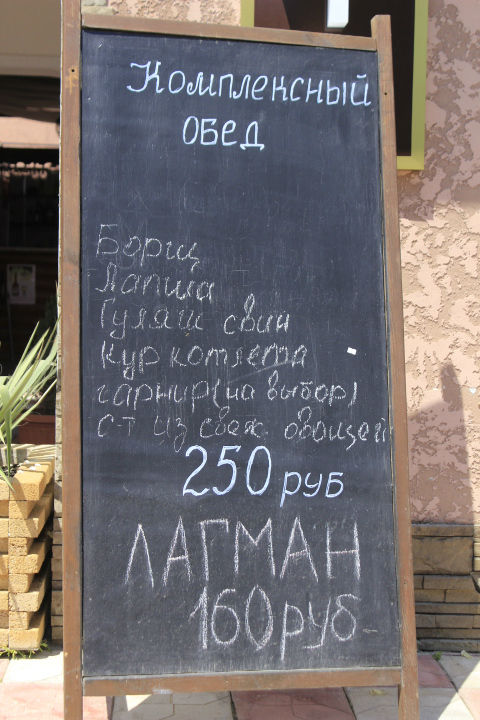 Комплексный
ОБЕД
Борщ
Лапша
Гуляш свин
Кур котлета
гарнир(на выбор)
с-т из свеж овощей
250 руб
ЛАГМАН
160руб-